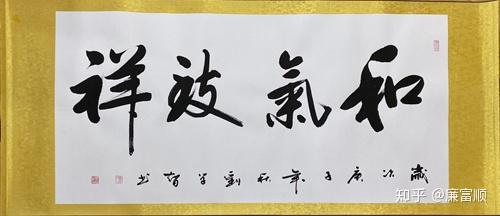 和氣致祥
歲次庚子年秋劉學智书
知乎 @廉富顺